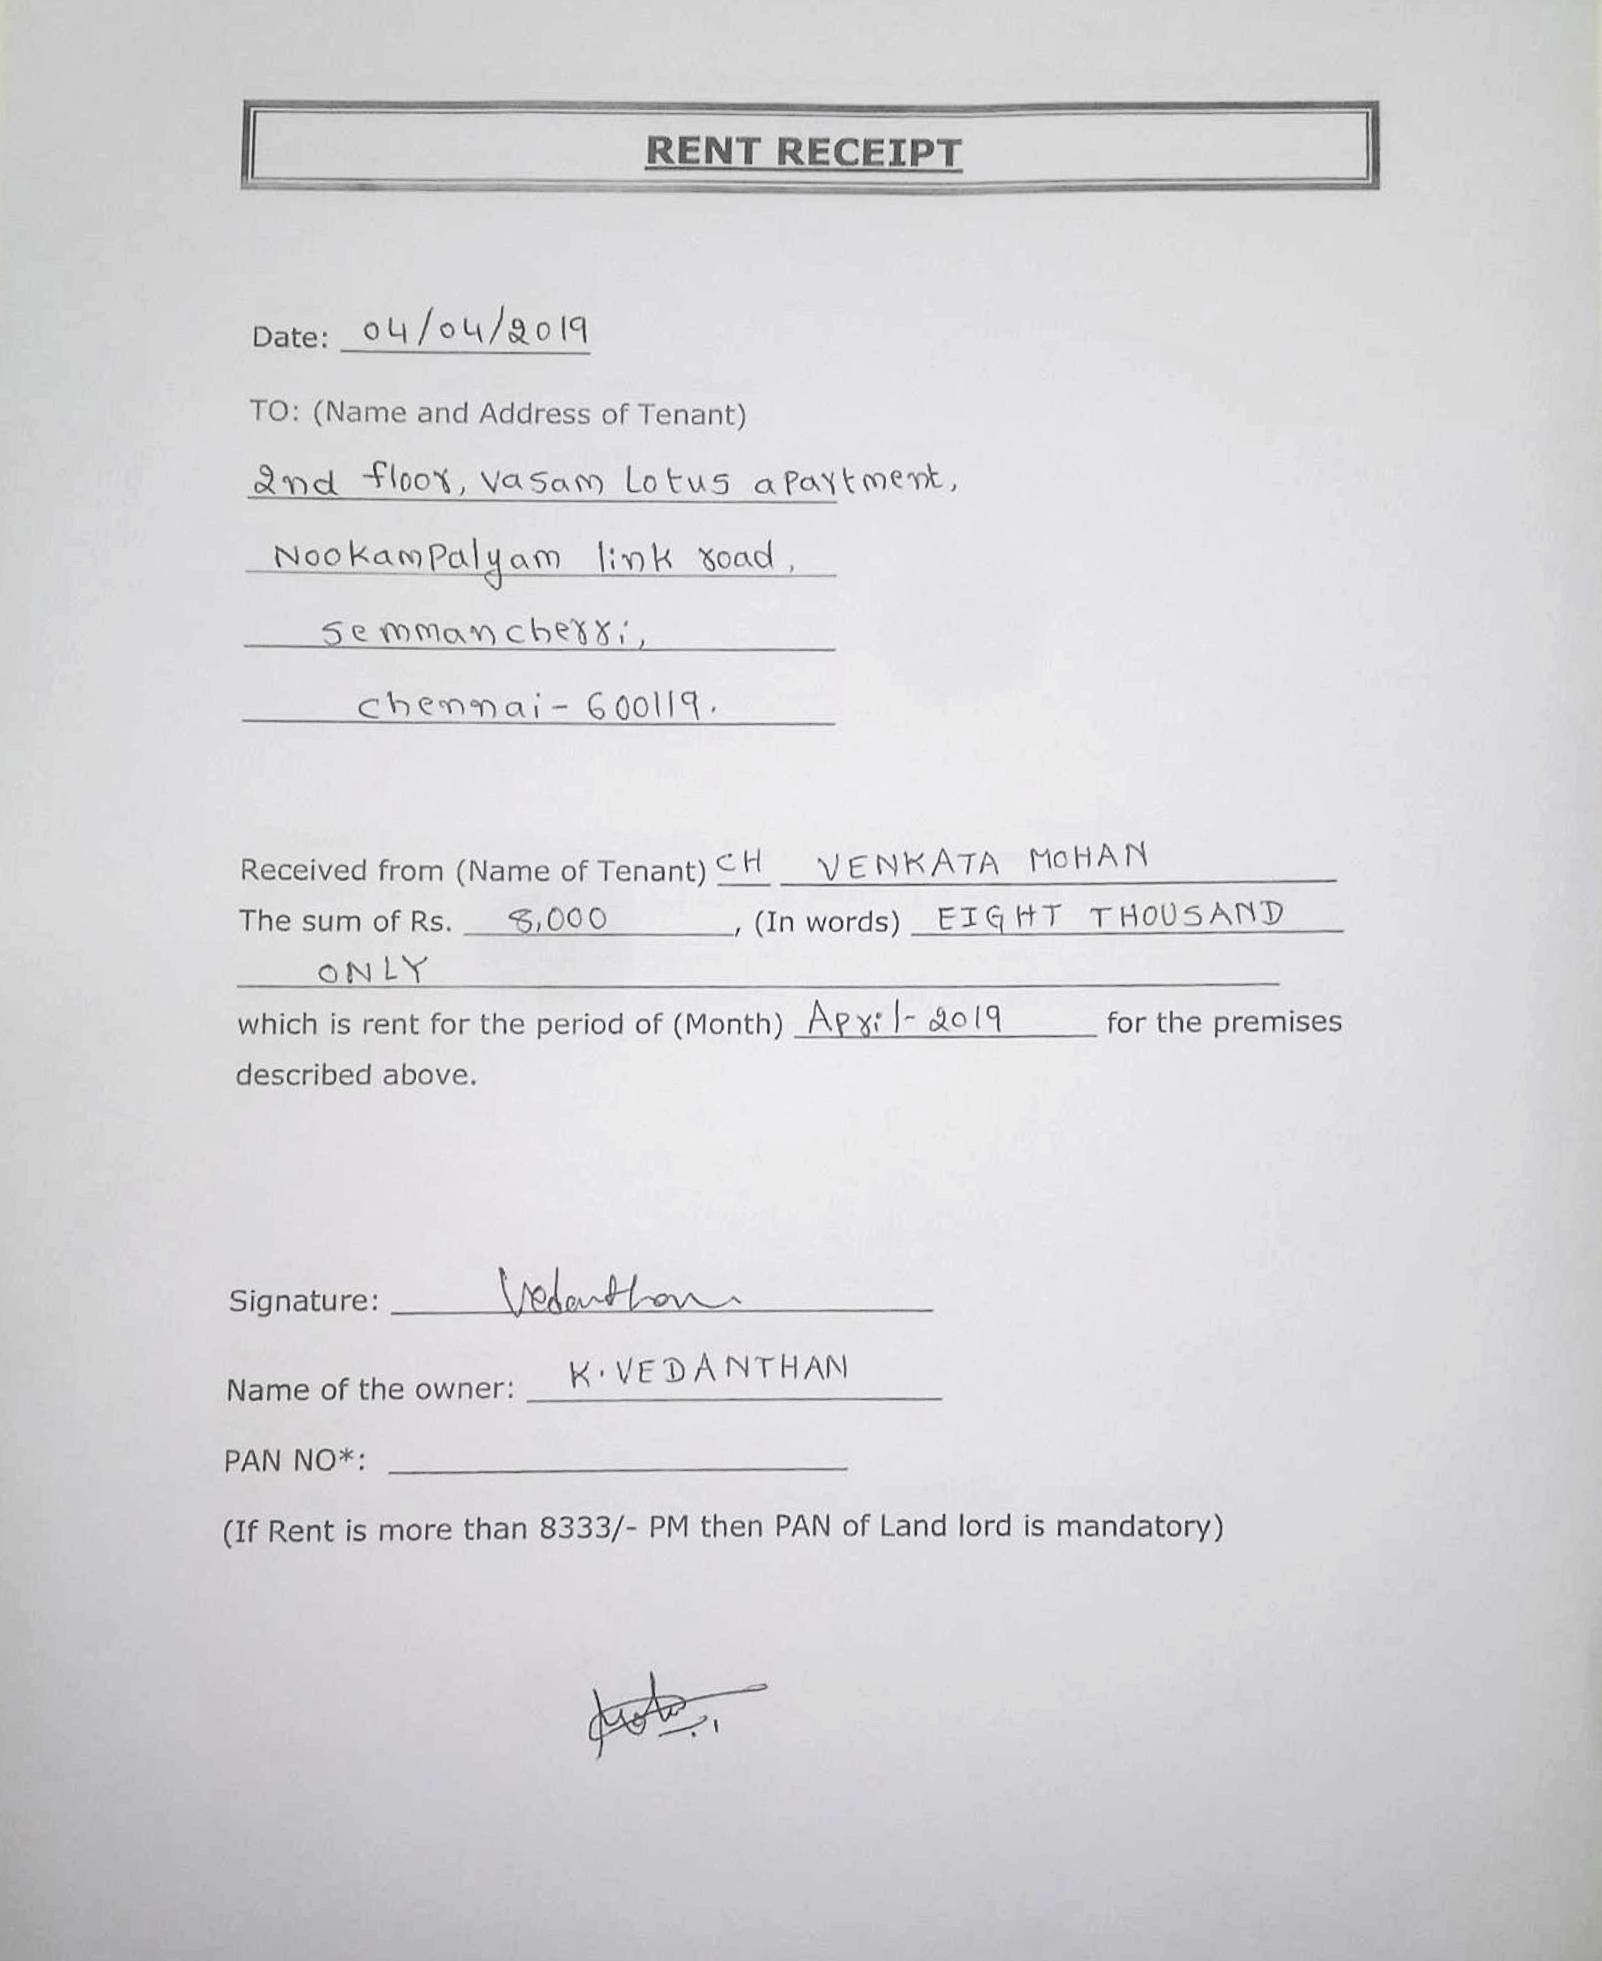 RENT RECEIPT
Date: 04/04/2019
TO: (Name and Address of Tenant)
2nd floor, Vasam Lotus apartment,
Nookampalyam link road,
Semmancherri,
chennai - 600119.
Received from (Name of Tenant) CH VENKATA MOHAN
The sum of Rs. 8,000, (In words) EIGHT THOUSAND
ONLY
which is rent for the period of (Month) April-2019 for the premises
described above.
Signature: Vedanthan
Name of the owner: K. VEDANTHAN
PAN NO*:
(If Rent is more than 8333/- PM then PAN of Land lord is mandatory)